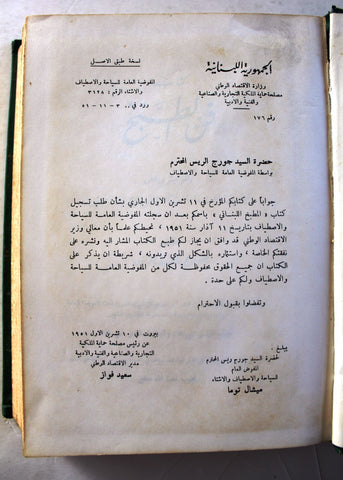 الجمهورية اللبنانية
وزارة الاقتصاد الوطني
مصلحة حماية الملكية التجارية والصناعية
والفنية والادبية
رقم ١٧٦
نسخة طبق الاصل
المفوضية العامة للسياحة والاصطياف
والانشاء الرقم : ٣١٢٨
ورد في .. ٣ - ١١ - ٥١
حضرة السيد جورج الريس المحترم
بواسطة المفوضية العامة للسياحة والاصطياف
جواباً على كتابكم المؤرخ في ١١ تشرين الاول الجاري بشأن طلب تسجيل
كتاب « المطبخ اللبناني » باسمكم بعد ان سجلته المفوضية العامة للسياحة
والاصطياف بتاريخ ١١ آذار سنة ١٩٥١ ، نحيطكم علماً بأن معالي وزير
الاقتصاد الوطني قد وافق ان يجاز لكم طبع الكتاب المشار اليه ونشره على
نفقتكم الخاصة ، واستثماره بالشكل الذي تريدونه ، شريطة ان يذكر على
الكتاب ان جميع الحقوق محفوظة لكل من المفوضية العامة للسياحة
والاصطياف ولكم على حدة .
وتفضلوا بقبول الاحترام
بيروت في ١٠ تشرين الاول ١٩٥١
عن رئيس مصلحة حماية الملكية
التجارية والصناعية والفنية والادبية
مدير الاقتصاد الوطني
سعيد فواز
يبلغ .
حضرة السيد جورج ريس المحترم
المفوض العام
للسياحة والاصطياف والانشاء
ميشال توما